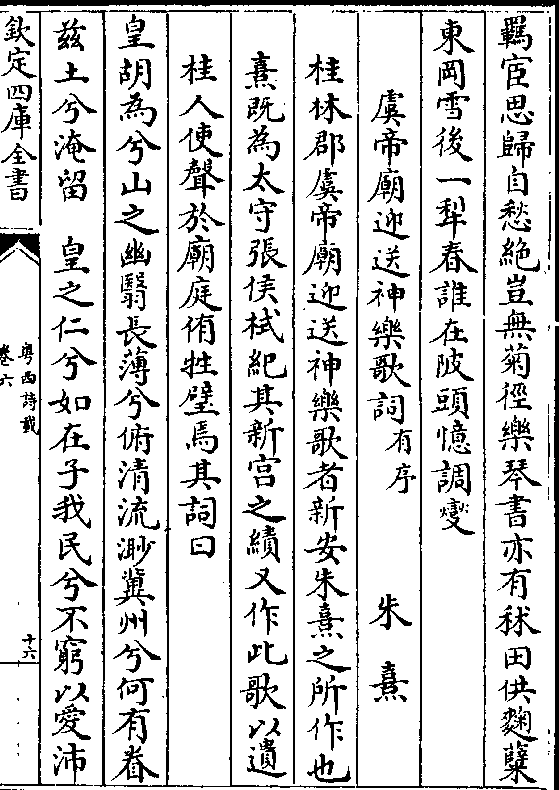 羈宦思歸自愁絶豈無菊徑樂琴書亦有秫田供麴糵
東岡雪後一犁春誰在陂頭憶調爕
虞帝廟迎送神樂歌詞有序 朱熹
桂林郡虞帝廟迎送神樂歌者新安朱熹之所作也
熹既為太守張侯栻紀其新宫之績又作此歌以遺
桂人使聲於廟庭侑牲璧焉其詞曰
皇胡為兮山之幽翳長薄兮俯清流渺冀州兮何有眷
兹土兮淹留 皇之仁兮如在子我民兮不窮以愛沛
欽定四庫全書
粤西詩載
卷六
十六